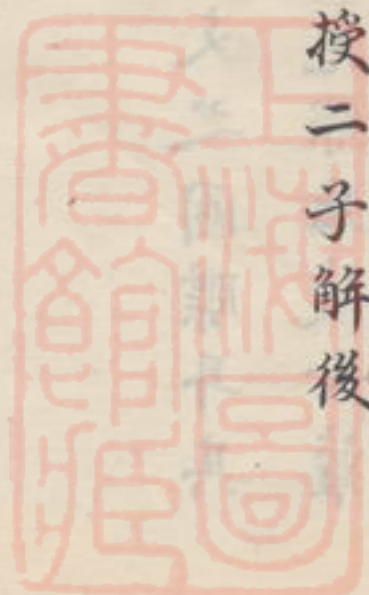 授二子解後
上海圖
書館藏